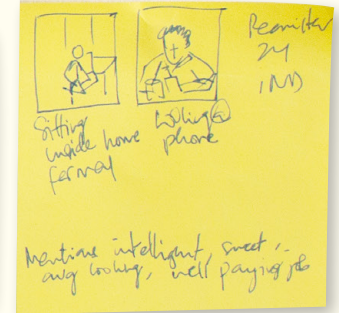 24
IND
Sitting
inside home
formal
Looking @
phone
Mentions intelligent, sweet,
avg looking, well paying job